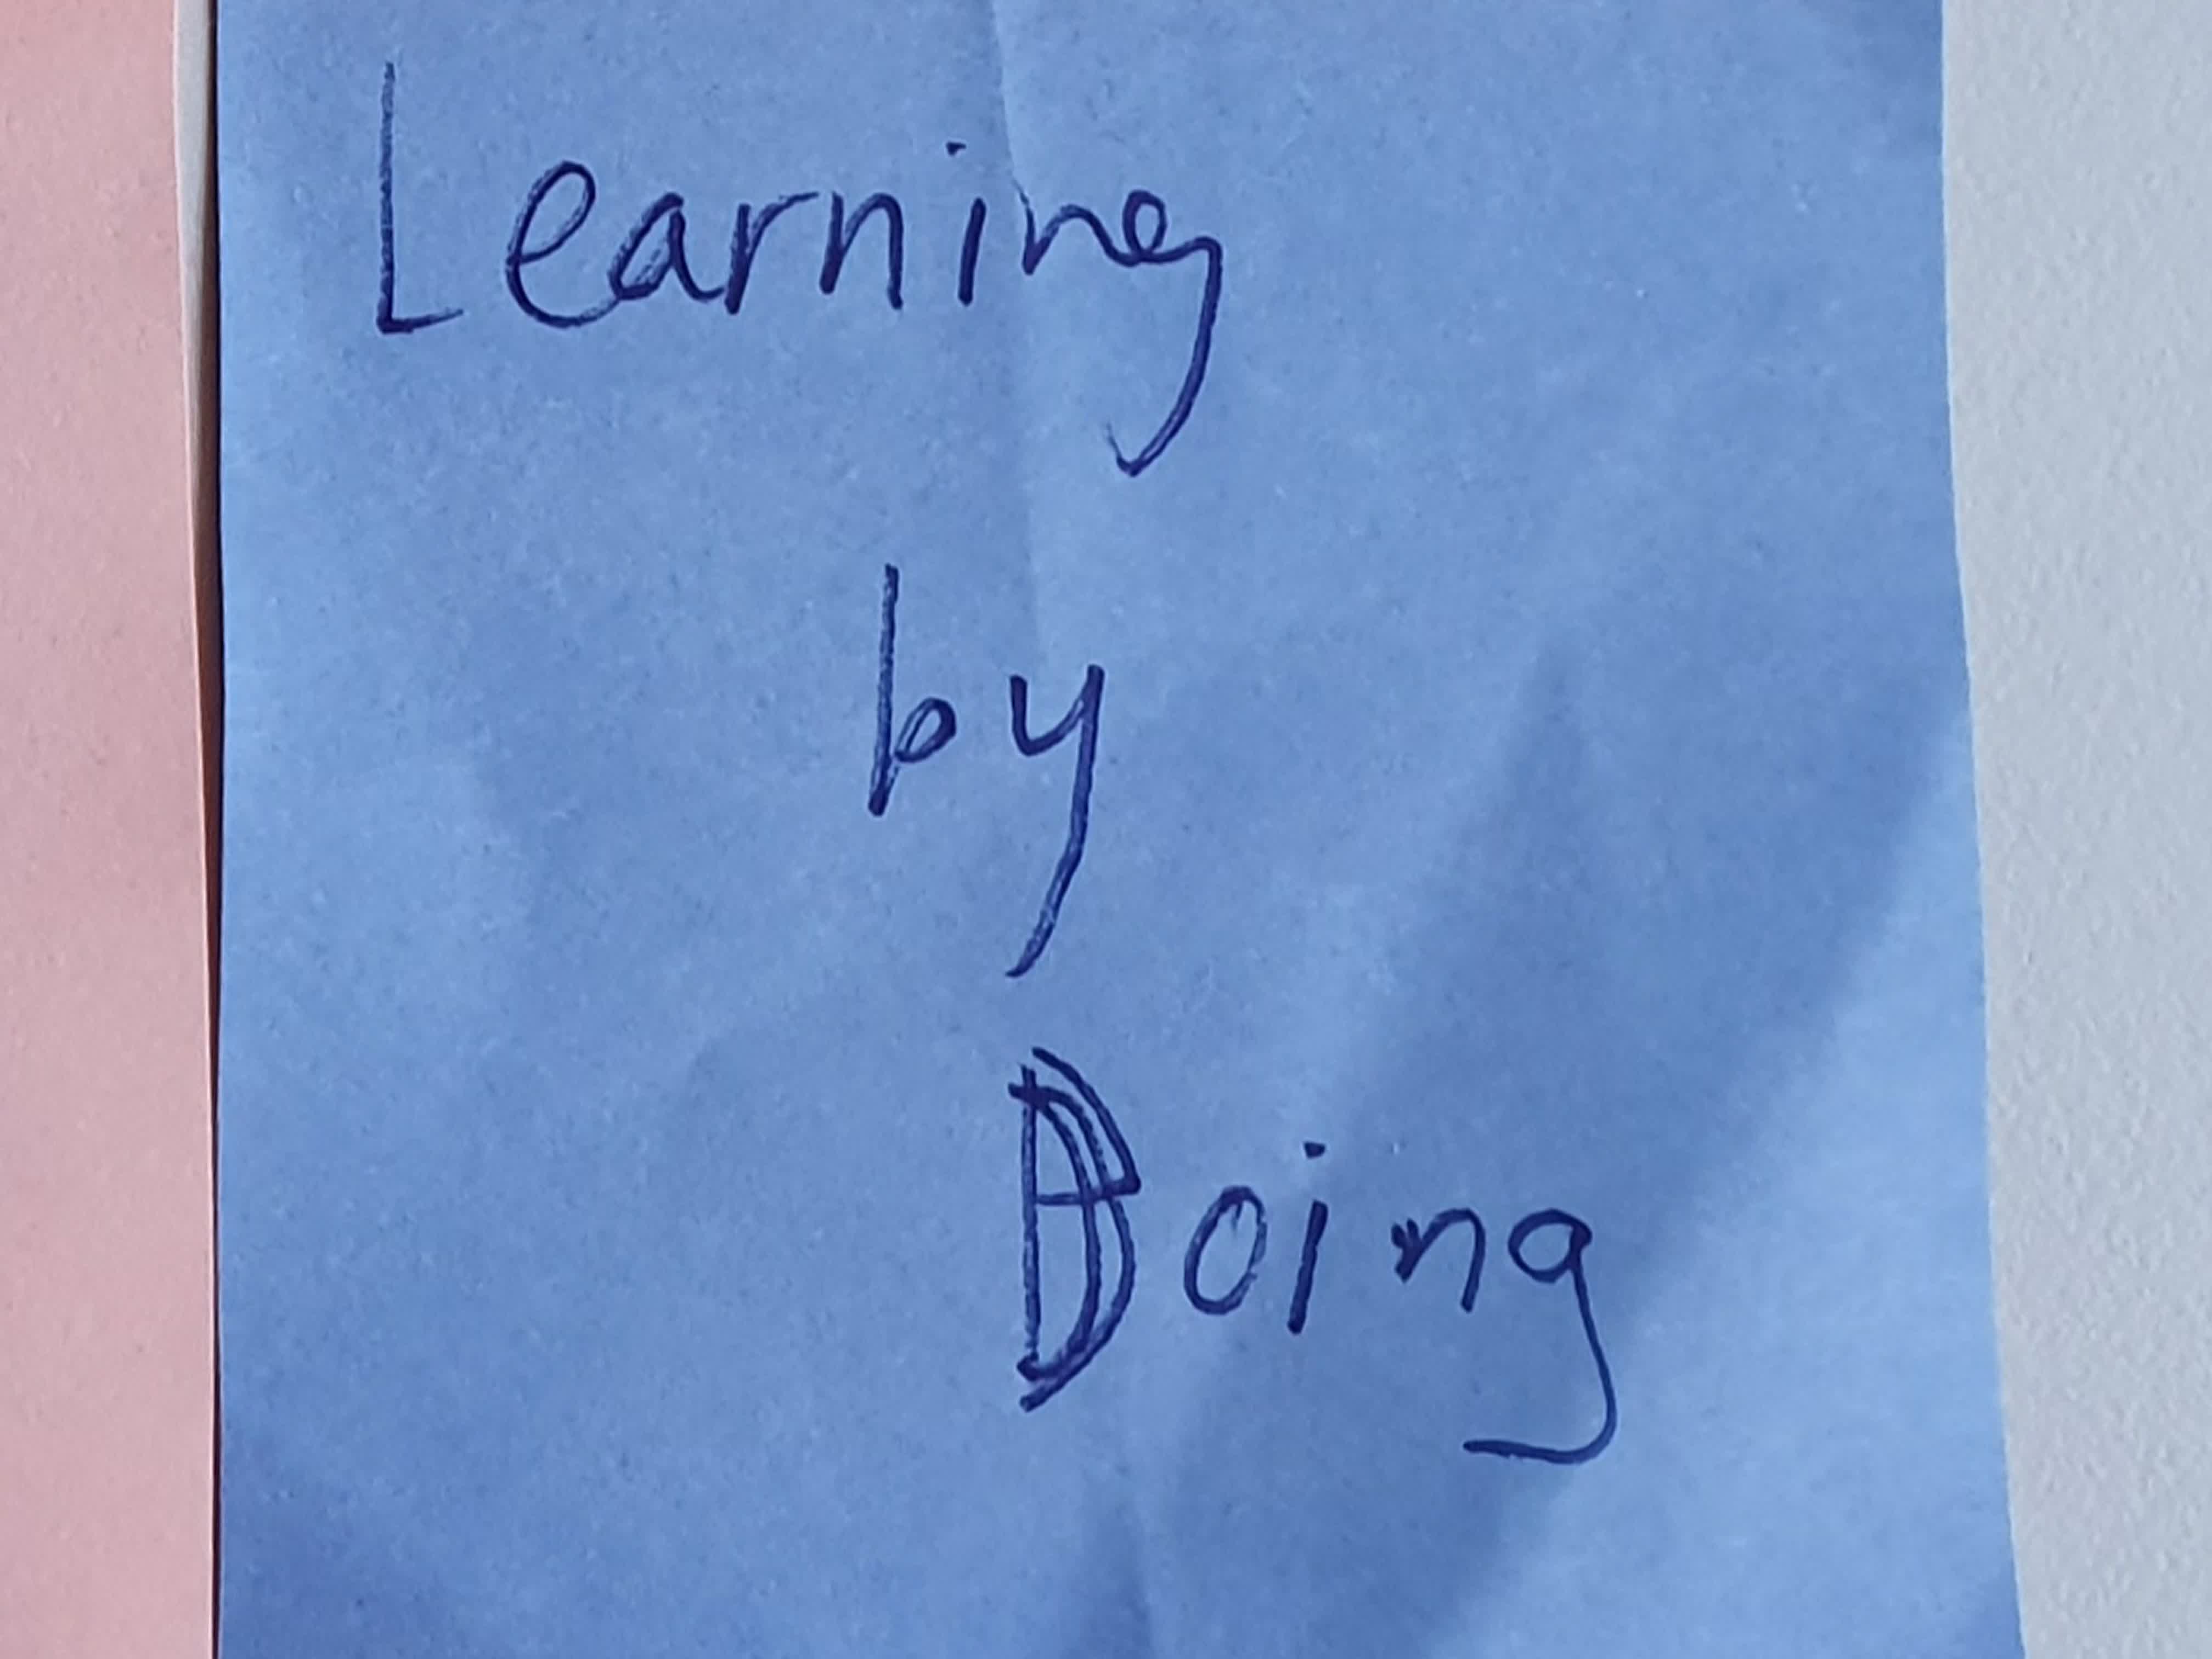 Learning
by
Doing